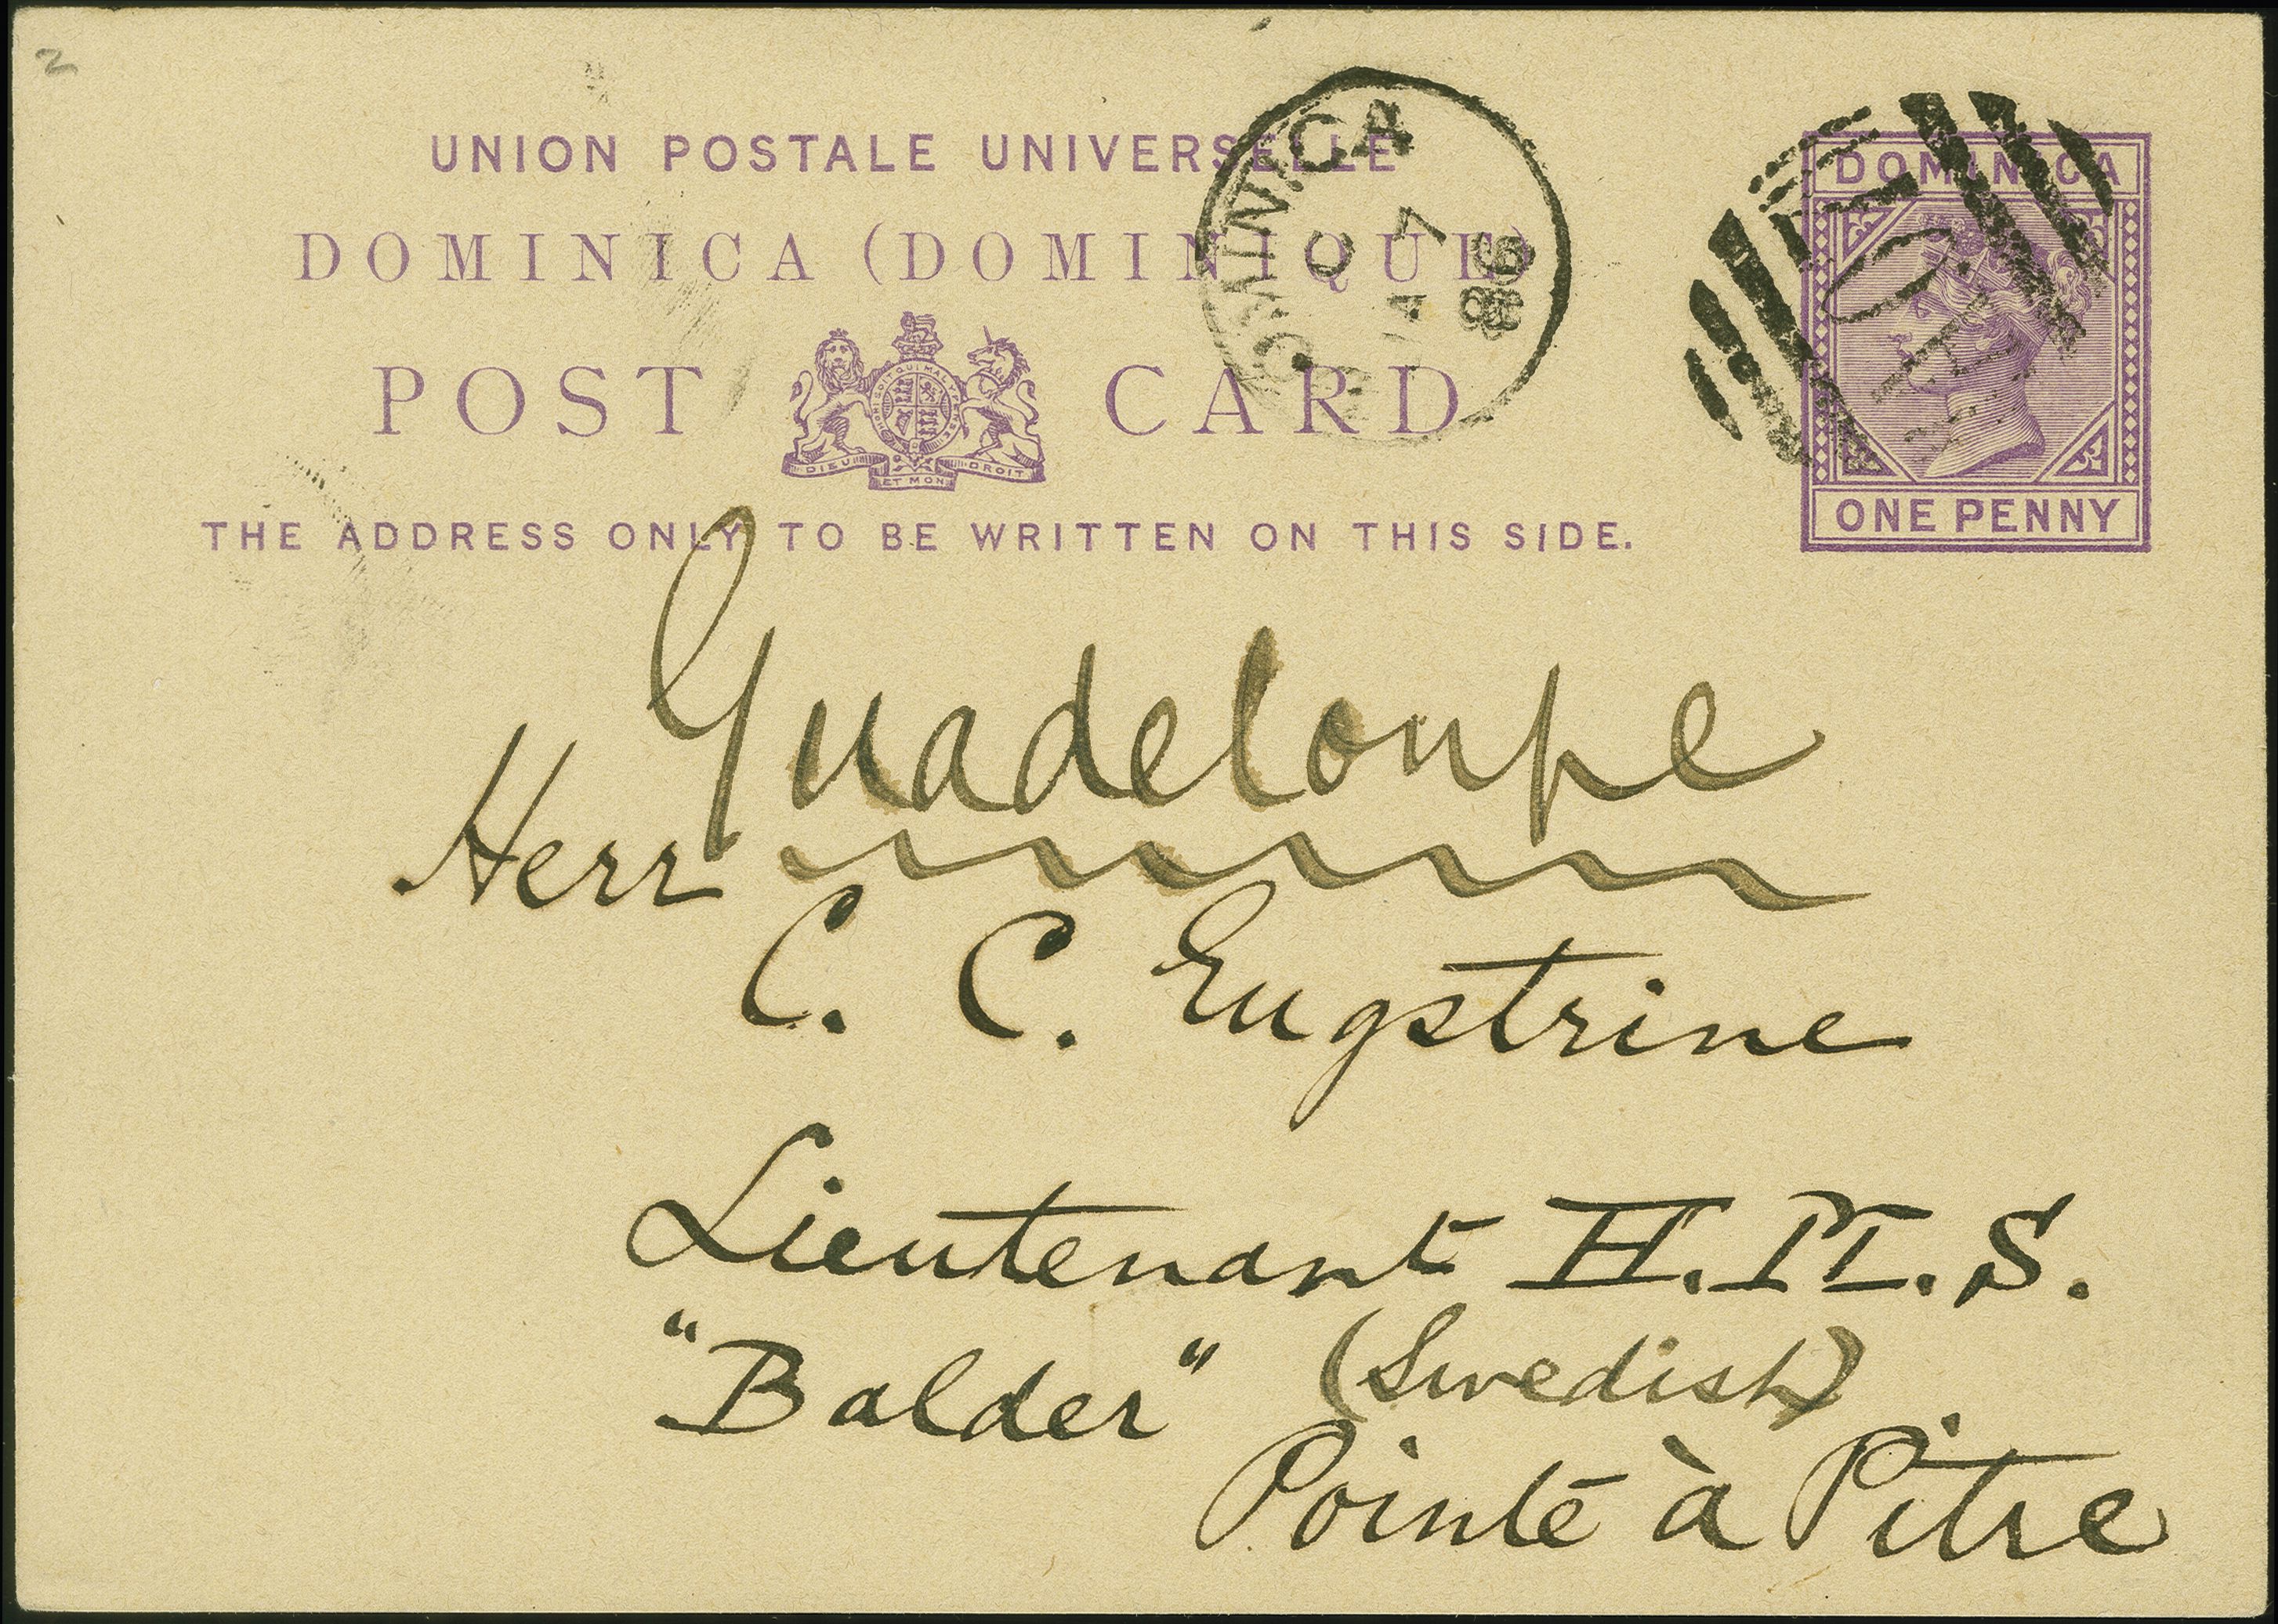 2
UNION POSTALE UNIVERSELLE
DOMINICA (DOMINIQUE)
POST CARD
HONI SOIT QUI MAL Y PENSE
DIEU ET MON DROIT
THE ADDRESS ONLY TO BE WRITTEN ON THIS SIDE.
DOMINICA
C
JA 7
86
DOMINICA
ONE PENNY
Guadeloupe
Herr
C. C. Engstrine
Lieutenant H.M.S.
"Balder" (Swedish)
Pointe à Pitre